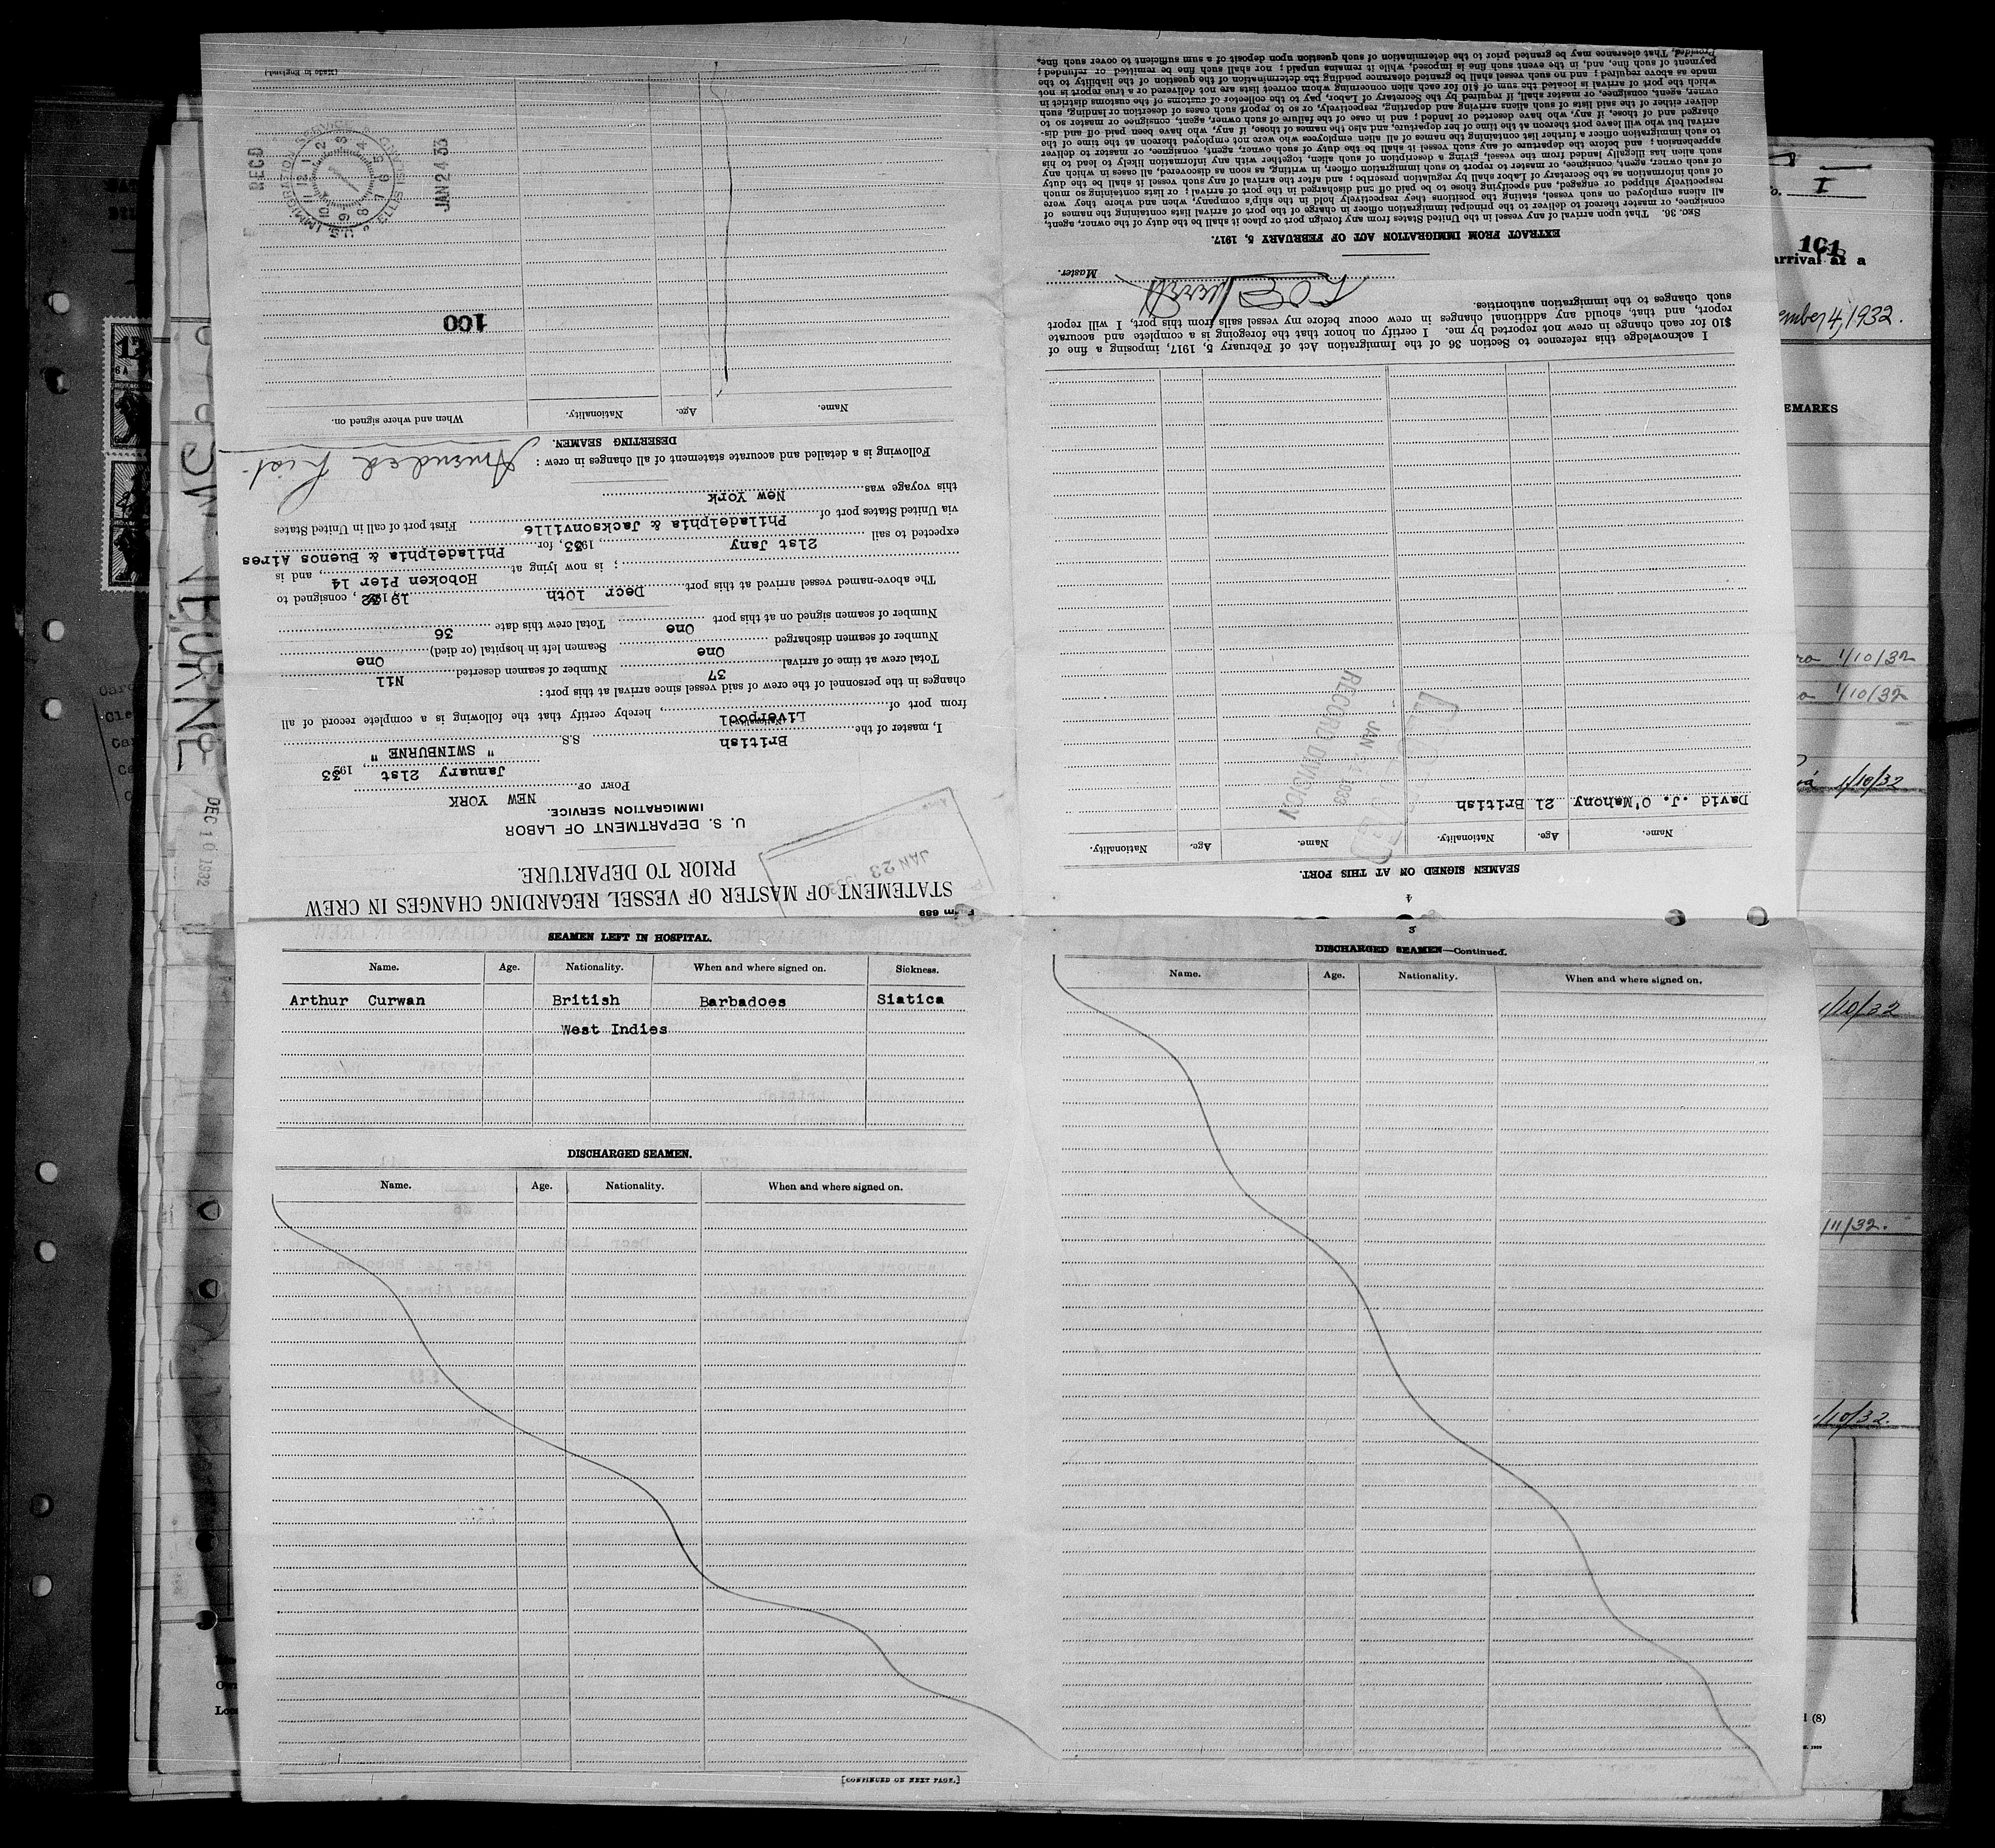 Form 689
STATEMENT OF MASTER OF VESSEL REGARDING CHANGES IN CREW
PRIOR TO DEPARTURE.
U. S. DEPARTMENT OF LABOR
IMMIGRATION SERVICE.
NEW YORK
PORT OF
January 21st, 1933
I, master of the British S.S. " SWINBURNE "
Nationality
from port of Liverpool, hereby certify that the following is a complete record of all
changes in the personnel of the crew of said vessel since arrival at this port:
Total crew at time of arrival 37 Number of seamen deserted Nil
Number of seamen discharged One Seamen left in hospital (or died) One
Number of seamen signed on at this port One Total crew this date 36
The above-named vessel arrived at this port Decr 10th 1932, consigned to
; is now lying at Hoboken Pier 14, and is
expected to sail 21st Jany, 1933, for Philadelphia & Buenos Aires
via United States port of Philadelphia & Jacksonville First port of call in United States
this voyage was New York
Following is a detailed and accurate statement of all changes in crew: Amended List.
DESERTING SEAMEN.
Name. Age. Nationality. When and where signed on.
100
REC'D
JAN 24 33
U.S. IMMIGRATION SERVICE ELLIS ISLAND
1 2 3 4 5 6 7 8 9 10 11 12
(Made in England.)
JAN 23 1933
4
SEAMEN SIGNED ON AT THIS PORT.
Name. Age. Nationality. Name. Age. Nationality.
David .J. O'Mahony 21 British
JAN 24 1933
RECORD DIVISION
I acknowledge this reference to Section 36 of the Immigration Act of February 5, 1917, imposing a fine of
$10 for each change in crew not reported by me. I certify on honor that the foregoing is a complete and accurate
report, and that, should any additional changes in crew occur before my vessel sails from this port, I will report
such changes to the immigration authorities.
Master.
EXTRACT FROM IMMIGRATION ACT OF FEBRUARY 5, 1917.
SEC. 36. That upon arrival of any vessel in the United States from any foreign port or place it shall be the duty of the owner, agent,
consignee, or master thereof to deliver to the principal immigration officer in charge of the port of arrival lists containing the names of
all aliens employed on such vessel, stating the positions they respectively hold in the ship's company, when and where they were
respectively shipped or engaged, and specifying those to be paid off and discharged in the port of arrival; or lists containing so much
of such information as the Secretary of Labor shall by regulation prescribe; and after the arrival of any such vessel it shall be the duty
of such owner, agent, consignee, or master to report to such immigration officer, in writing, as soon as discovered, all cases in which any
such alien has illegally landed from the vessel, giving a description of such alien, together with any information likely to lead to his
apprehension; and before the departure of any such vessel it shall be the duty of such owner, agent, consignee, or master to deliver
to such immigration officer a further list containing the names of all alien employees who were not employed thereon at the time of the
arrival but who will leave port thereon at the time of her departure, and also the names of those, if any, who have been paid off and dis-
charged and of those, if any, who have deserted or landed; and in case of the failure of such owner, agent, consignee or master so to
deliver either of the said lists of such aliens arriving and departing, respectively, or so to report such cases of desertion or landing, such
owner, agent, consignee, or master shall, if required by the Secretary of Labor, pay to the collector of customs of the customs district in
which the port of arrival is located the sum of $10 for each alien concerning whom correct lists are not delivered or a true report is not
made as above required; and no such vessel shall be granted clearance pending the determination of the question of the liability to the
payment of such fine, and, in the event such fine is imposed, while it remains unpaid; nor shall such fine be remitted or refunded;
Provided, That clearance may be granted prior to the determination of such question upon deposit of a sum sufficient to cover such fine.
SEAMEN LEFT IN HOSPITAL.
Name. Age. Nationality. When and where signed on. Sickness.
Arthur Curwan British Barbadoes Siatica
West Indies
DISCHARGED SEAMEN.
Name. Age. Nationality. When and where signed on.
[CONTINUED ON NEXT PAGE.]
3
DISCHARGED SEAMEN—Continued.
Name. Age. Nationality. When and where signed on.
DEC 10 1932
I
101
arrival at a
ember 4, 1932.
EMARKS
1/10/32
1/10/32
1/10/32
1/10/32
/11/32.
1/10/32.
(8)